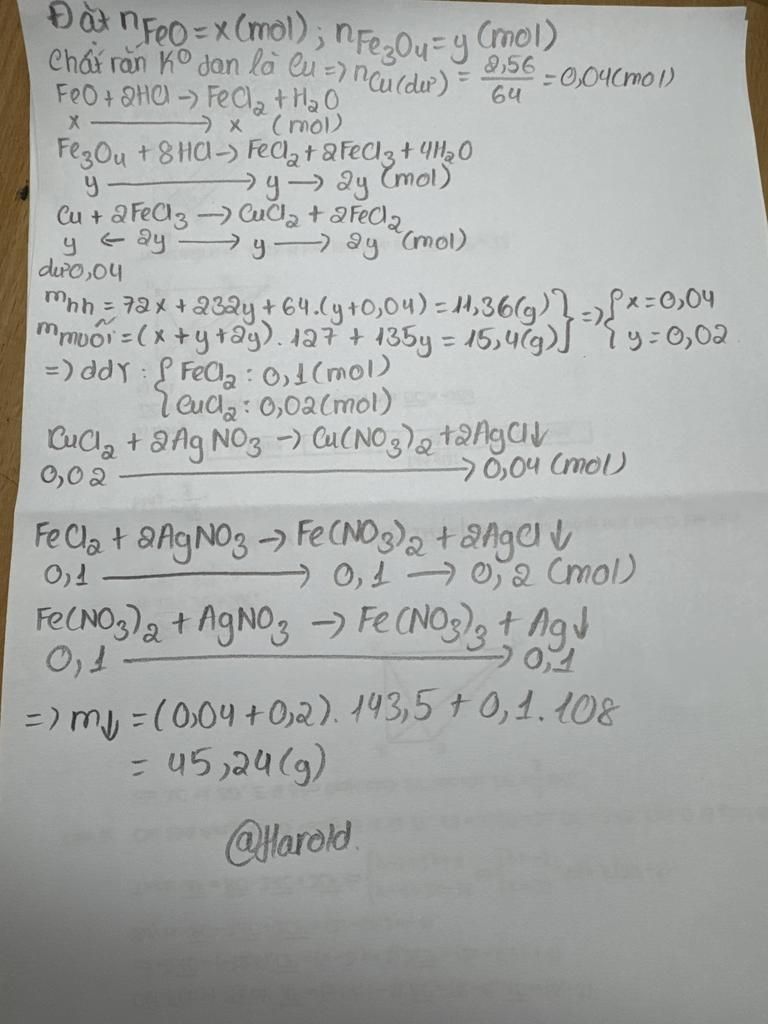 Đặt nFeO = x (mol) ; nFe3O4 = y (mol)
Chất rắn Ko tan là Cu => nCu(dư) = 2,56/64 = 0,04 (mol)
FeO + 2HCl -> FeCl2 + H2O
x -> x (mol)
Fe3O4 + 8HCl -> FeCl2 + 2FeCl3 + 4H2O
y -> y -> 2y (mol)
Cu + 2FeCl3 -> CuCl2 + 2FeCl2
y <- 2y -> y -> 2y (mol)
dư 0,04
mhh = 72x + 232y + 64.(y + 0,04) = 11,36 (g) } => { x = 0,04
mmuối = (x + y + 2y). 127 + 135y = 15,4 (g) } { y = 0,02
=> ddY : { FeCl2 : 0,1 (mol)
{ CuCl2 : 0,02 (mol)
CuCl2 + 2AgNO3 -> Cu(NO3)2 + 2AgCl↓
0,02 -> 0,04 (mol)
FeCl2 + 2AgNO3 -> Fe(NO3)2 + 2AgCl↓
0,1 -> 0,1 -> 0,2 (mol)
Fe(NO3)2 + AgNO3 -> Fe(NO3)3 + Ag↓
0,1 -> 0,1
=> m↓ = (0,04 + 0,2). 143,5 + 0,1. 108
= 45,24 (g)
@Harold.